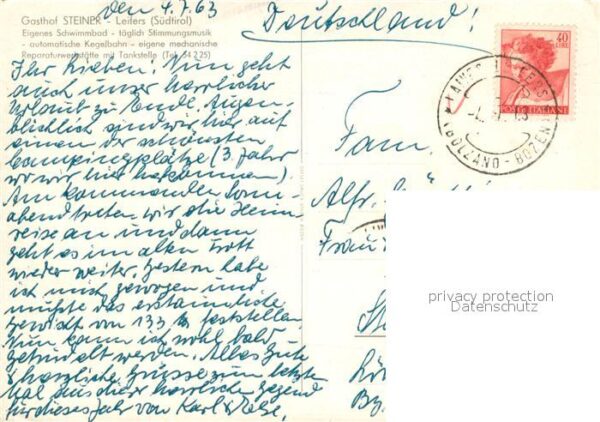 den 4.7.63
Deutschland!
Gasthof STEINER - Leifers (Südtirol)
Eigenes Schwimmbad - täglich Stimmungsmusik
- automatische Kegelbahn - eigene mechanische
Reparaturwerkstätte mit Tankstelle (Tel. 34 2 25)
Ihr Lieben! Nun geht
auch unser herrlicher
Urlaub zu Ende. Augen-
blicklich sind wir hier auf
einem der schönsten
Campingplätze (3. Jahr
wo wir hier herkommen).
Am kommenden Sonn-
abend treten wir die Heim-
reise an und dann
geht es im alten Trott
wieder weiter. Gestern habe
ich mich gewogen und
mußte das erstaunliche
Gewicht von 133 feststellen.
Nun kann ich wohl bald
gekudelt werden. Alles Gute
& herzliche Grüsse zum letzten
Mal aus dieser herrlichen Gegend
für dieses Jahr von Karl &
Fam.
Alfr.
Frau
40
LIRE
POSTE ITALIANE
LAIVES - LEIFERS
BOLZANO - BOZEN
privacy protection
Datenschutz